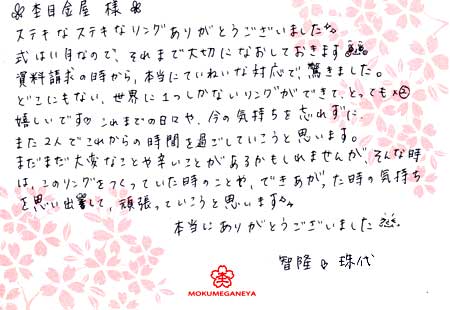 杢目金屋 様
ステキなステキなリングありがとうございました
式は11月なので、それまで大切になおしておきます
資料請求の時から、本当にていねいな対応で、驚きました。
どこにもない、世界に1つしかないリングができて、とっても
嬉しいです これまでの日々や、今の気持ちを忘れずに
また2人でこれからの時間を過ごしていこうと思います。
まだまだ大変なことや辛いことがあるかもしれませんが、そんな時
は、このリングをつくっていた時のことや、できあがった時の気持ち
を思い出して、頑張っていこうと思います
本当にありがとうございました
智隆 珠代
MOKUMEGANEYA